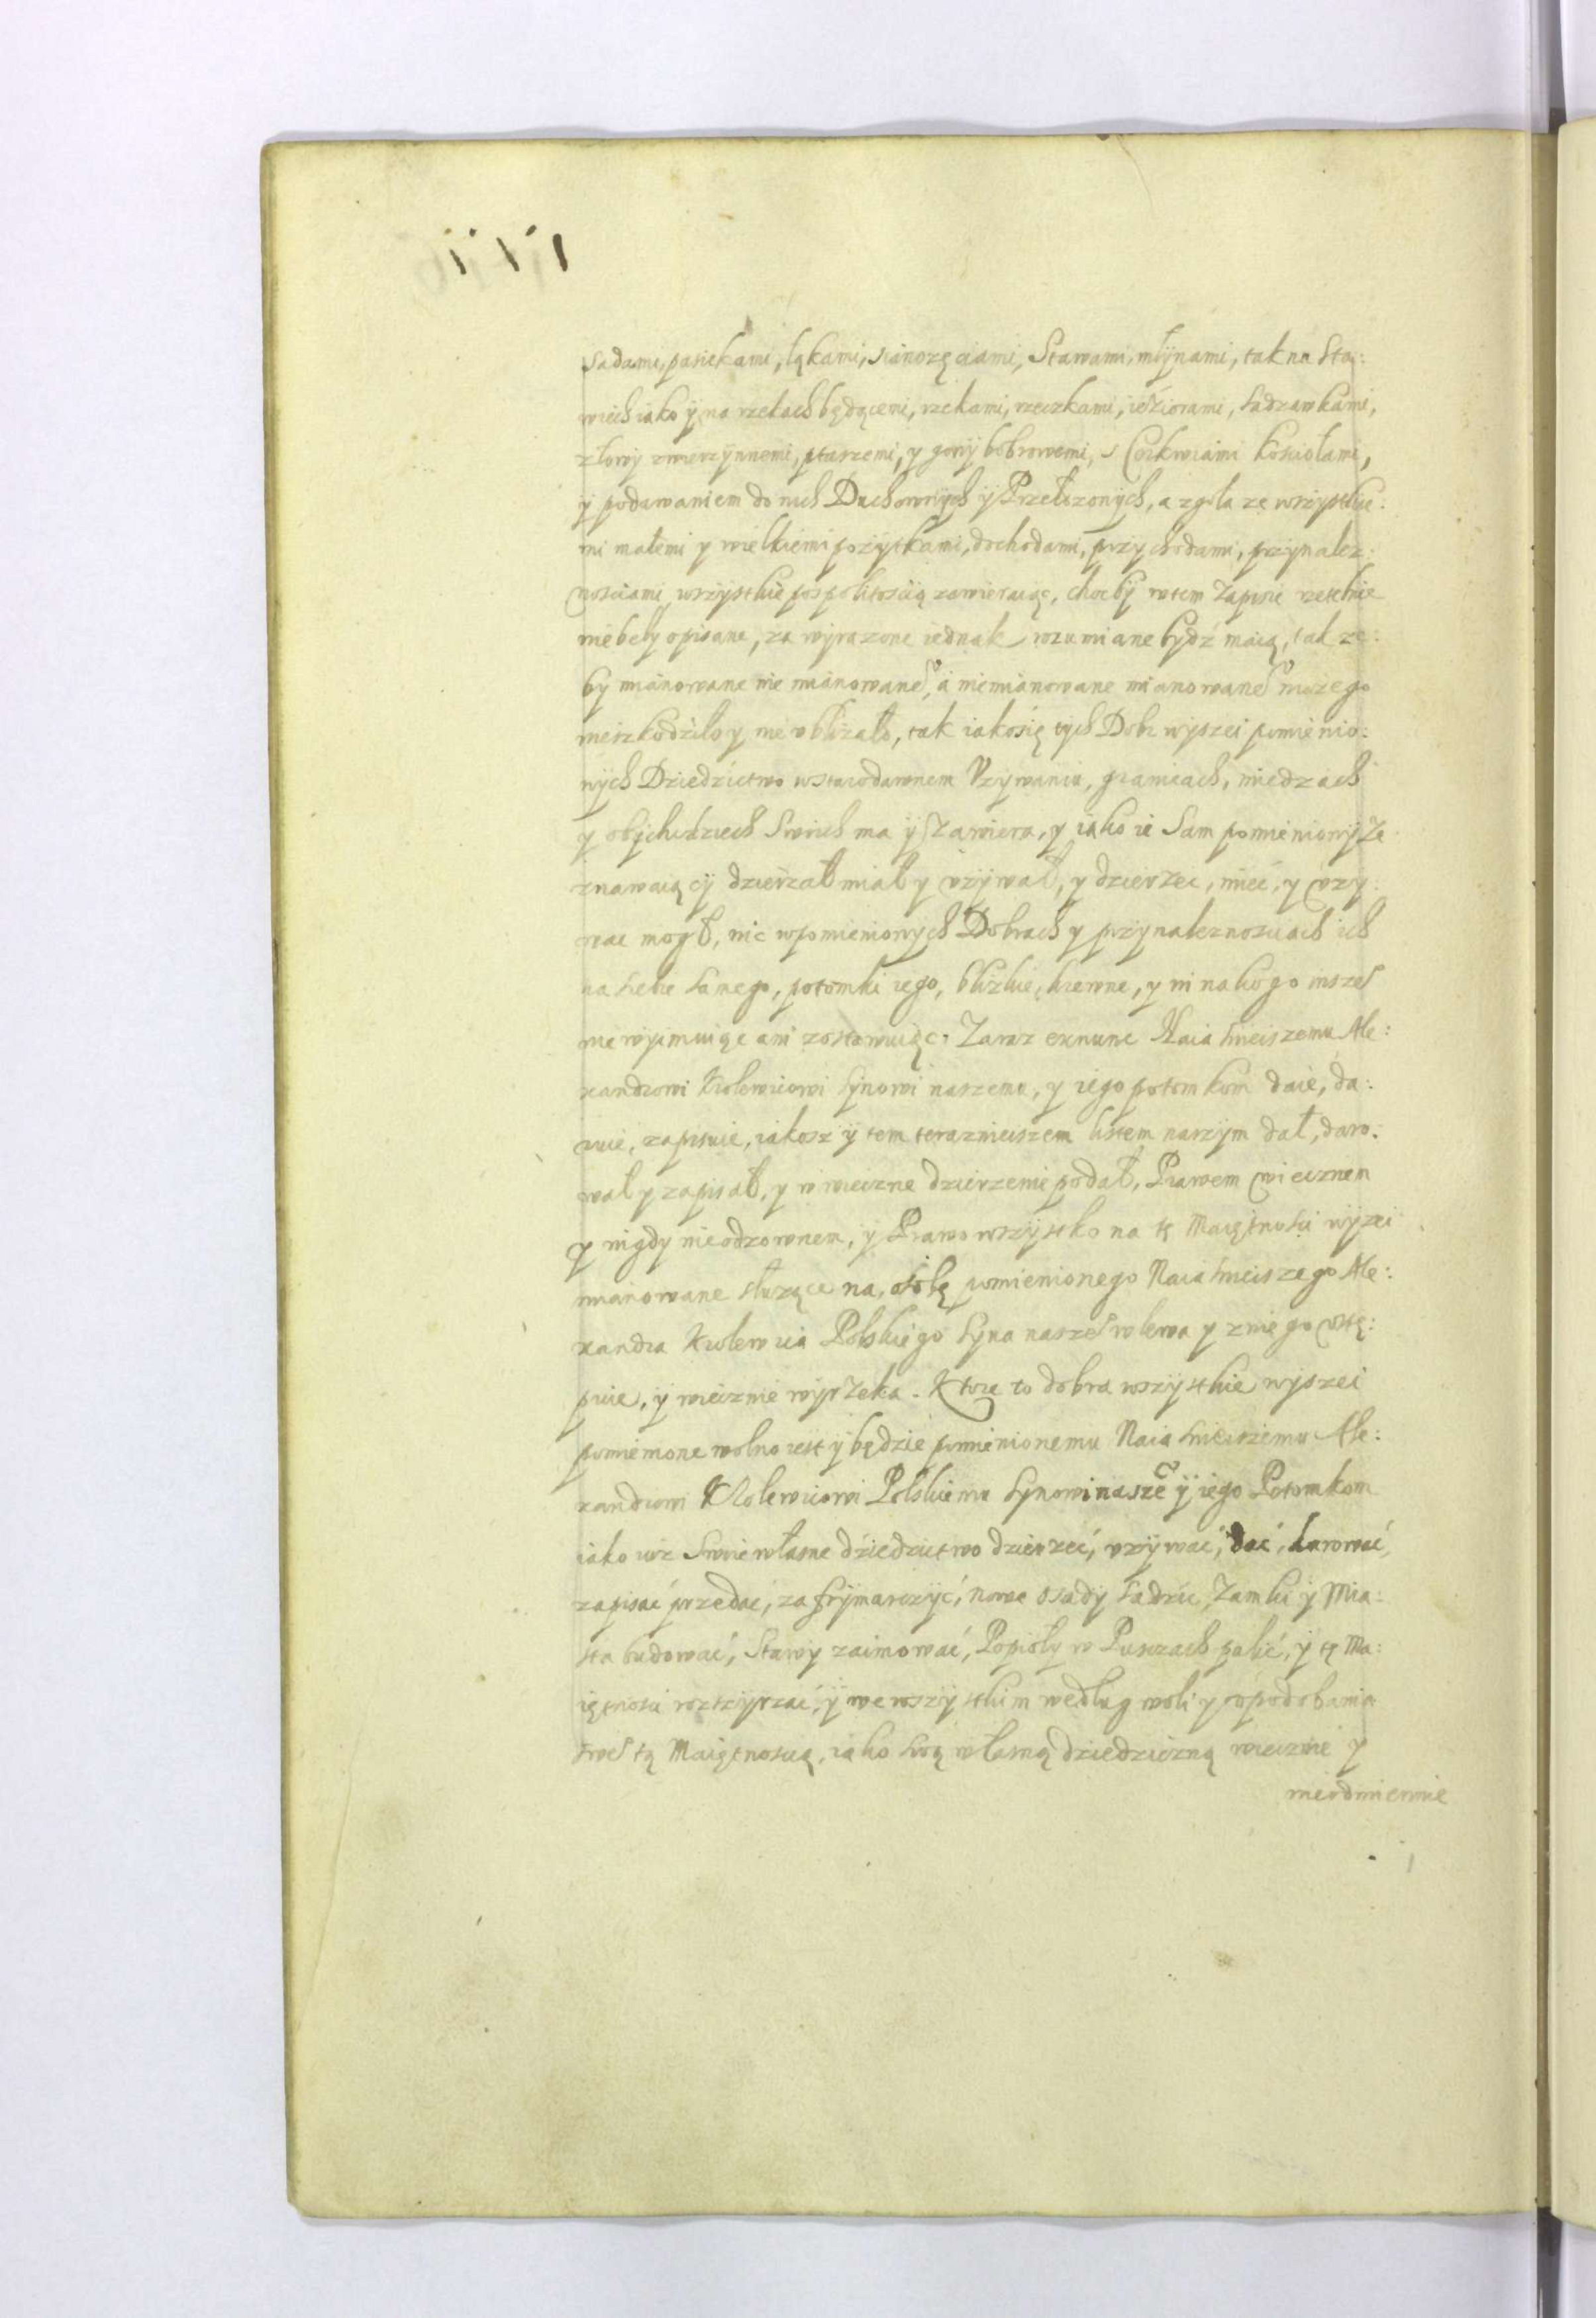 sadami, pasiekami, łąkami, sianozęciami, Stawami, młynami, tak na Sta:
wiech iako ÿ na rzekach będącemi, rzekami, rzeczkami, ieźiorami, Sadzawkami,
złowy zwierzynnemi, ptaszemi, y gony bobrowemi, s Cerkwiami Kosciołami,
ÿ podawaniem do nich Duchownych ÿ Przełozonych, a zgoła ze wszystkie:
mi małemi y wielkiemi pozytkami, dochodami, przychodami, przynalez:
nosciami wszystkie pospolitoscią zamieraiąc, choc by wtem Zapisie rzetelnie
nie beły opisane, za wyrazone iednak rozumiane bydź maią, tak ze:
by mianowane nie mianowane°, á niemianowane mianowane° mozego
nieszkodziło y nie vblizało, tak iako się tych Dobr wyszei pomienio:
nych Dziedzictwo wstarodawnem Vzywaniu, granicach, miedzach
y obychodziech Swoich ma ÿ Zawiera, y iako ie Sam pomieniony Ze
znawaiący dzierzał miał y vzywał, y dzierzec, mieć, y vzy:
wac mogł, nic wpomienionych Dobrach y przynaleznosciach ich
na Siebie Samego, potomki iego, blizkie, krewne, y ni nakogo insze°
nie wyimuiąc ani zostawuiąc. Zaraz exnunc Naiasnieiszemu Ale:
xandrowi Krolewicowi Synowi naszemu, y iego potomkom daie, da:
ruie, zapisuie, iakosz ÿ tem terazniejszem listem naszym dał, daro:
wał y zapisał, y w wieczne dzierzenie podał, Prawem wiecznem
y nigdy nieodzownem, ÿ Prawo wszystko na te Maiętnosci wyzei
mianowane słuzące na, osobę pomienionego Naiasnieiszego Ale:
xandra Krolewica Polskiego Syna nasze° wlewa y zniego vstę:
puie, ÿ wiecznie wyrzeka. Ktore to dobra wszystkie wyszei
pomienione wolno iest ÿ będzie pomienionemu Naiasnieiszemu Ale:
xandrowi Krolewicowi Polskiemu Synowi nasze° ÿ iego Potomkom
iako iuz Swoie własne dźiedzictwo dzierzeć, vzywać, dać, darować,
zapisać przedać, zafrymarczyć, nowe osady Sadzic, Zamki ÿ Mia:
sta budować, Stawy zaimować, Popioły w Puszczach palić, ÿ tę Ma:
iętnosci rosszyrzać, ÿ we wszystkim według woli y vpodobania
swe° tą Maiętnoscią, iako swą własną dziedziczną wiecznie y
nieodmiennie